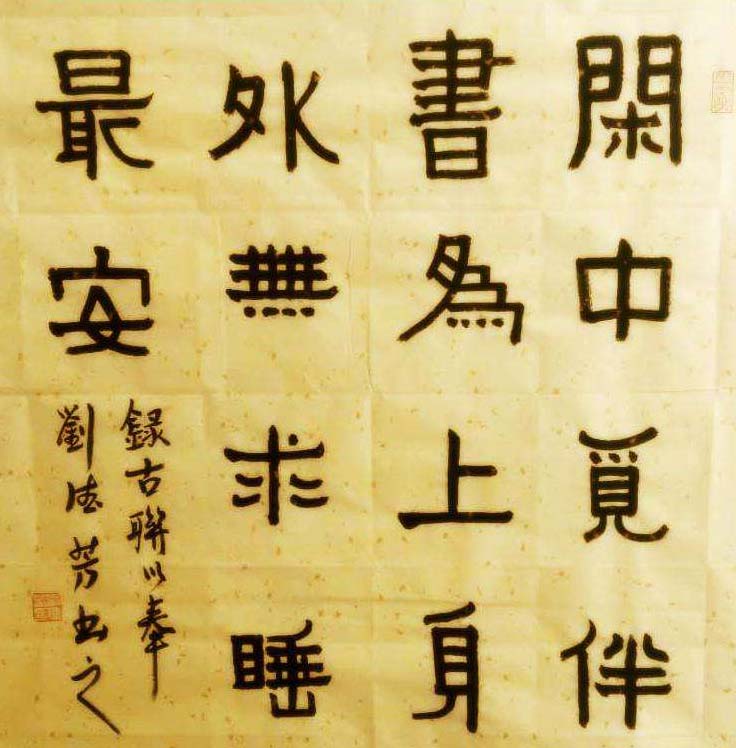 閑中覓伴
書為上身
外無求睡
最安
録古聯以奉
劉德芳書之